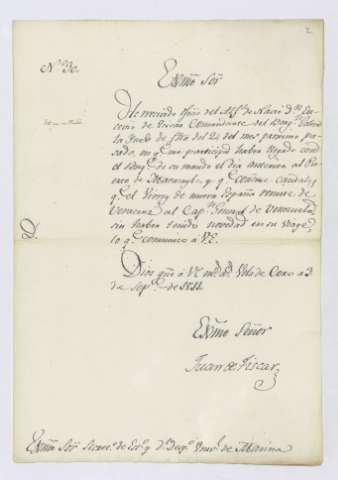 2
N.º 30.
Exmo Sor
He recivido oficio del Alf.z de Navio D.n
Comandante del Berg.n
de fho del 24 del mes proximo pa-
sado, en q.e me participa haber llegado con
el de su mando el dia anterior al Pu-
erto de Maracaybo, y q.e conduce caudales
q.e el Virrey de nueva España remite de
Veracruz al Cap.n Gral de Venezuela
sin haber tenido novedad en su viage
lo q.e comunico á V.E.
D.
Dios gue á V.E. m.s a.s de Coro á 3
de Sep.e de 1811.
Exmo Señor
Juan de Tiscar
Exmo Sor Secret.o de Est.o y D.l Desp.o Univ.l de Marina